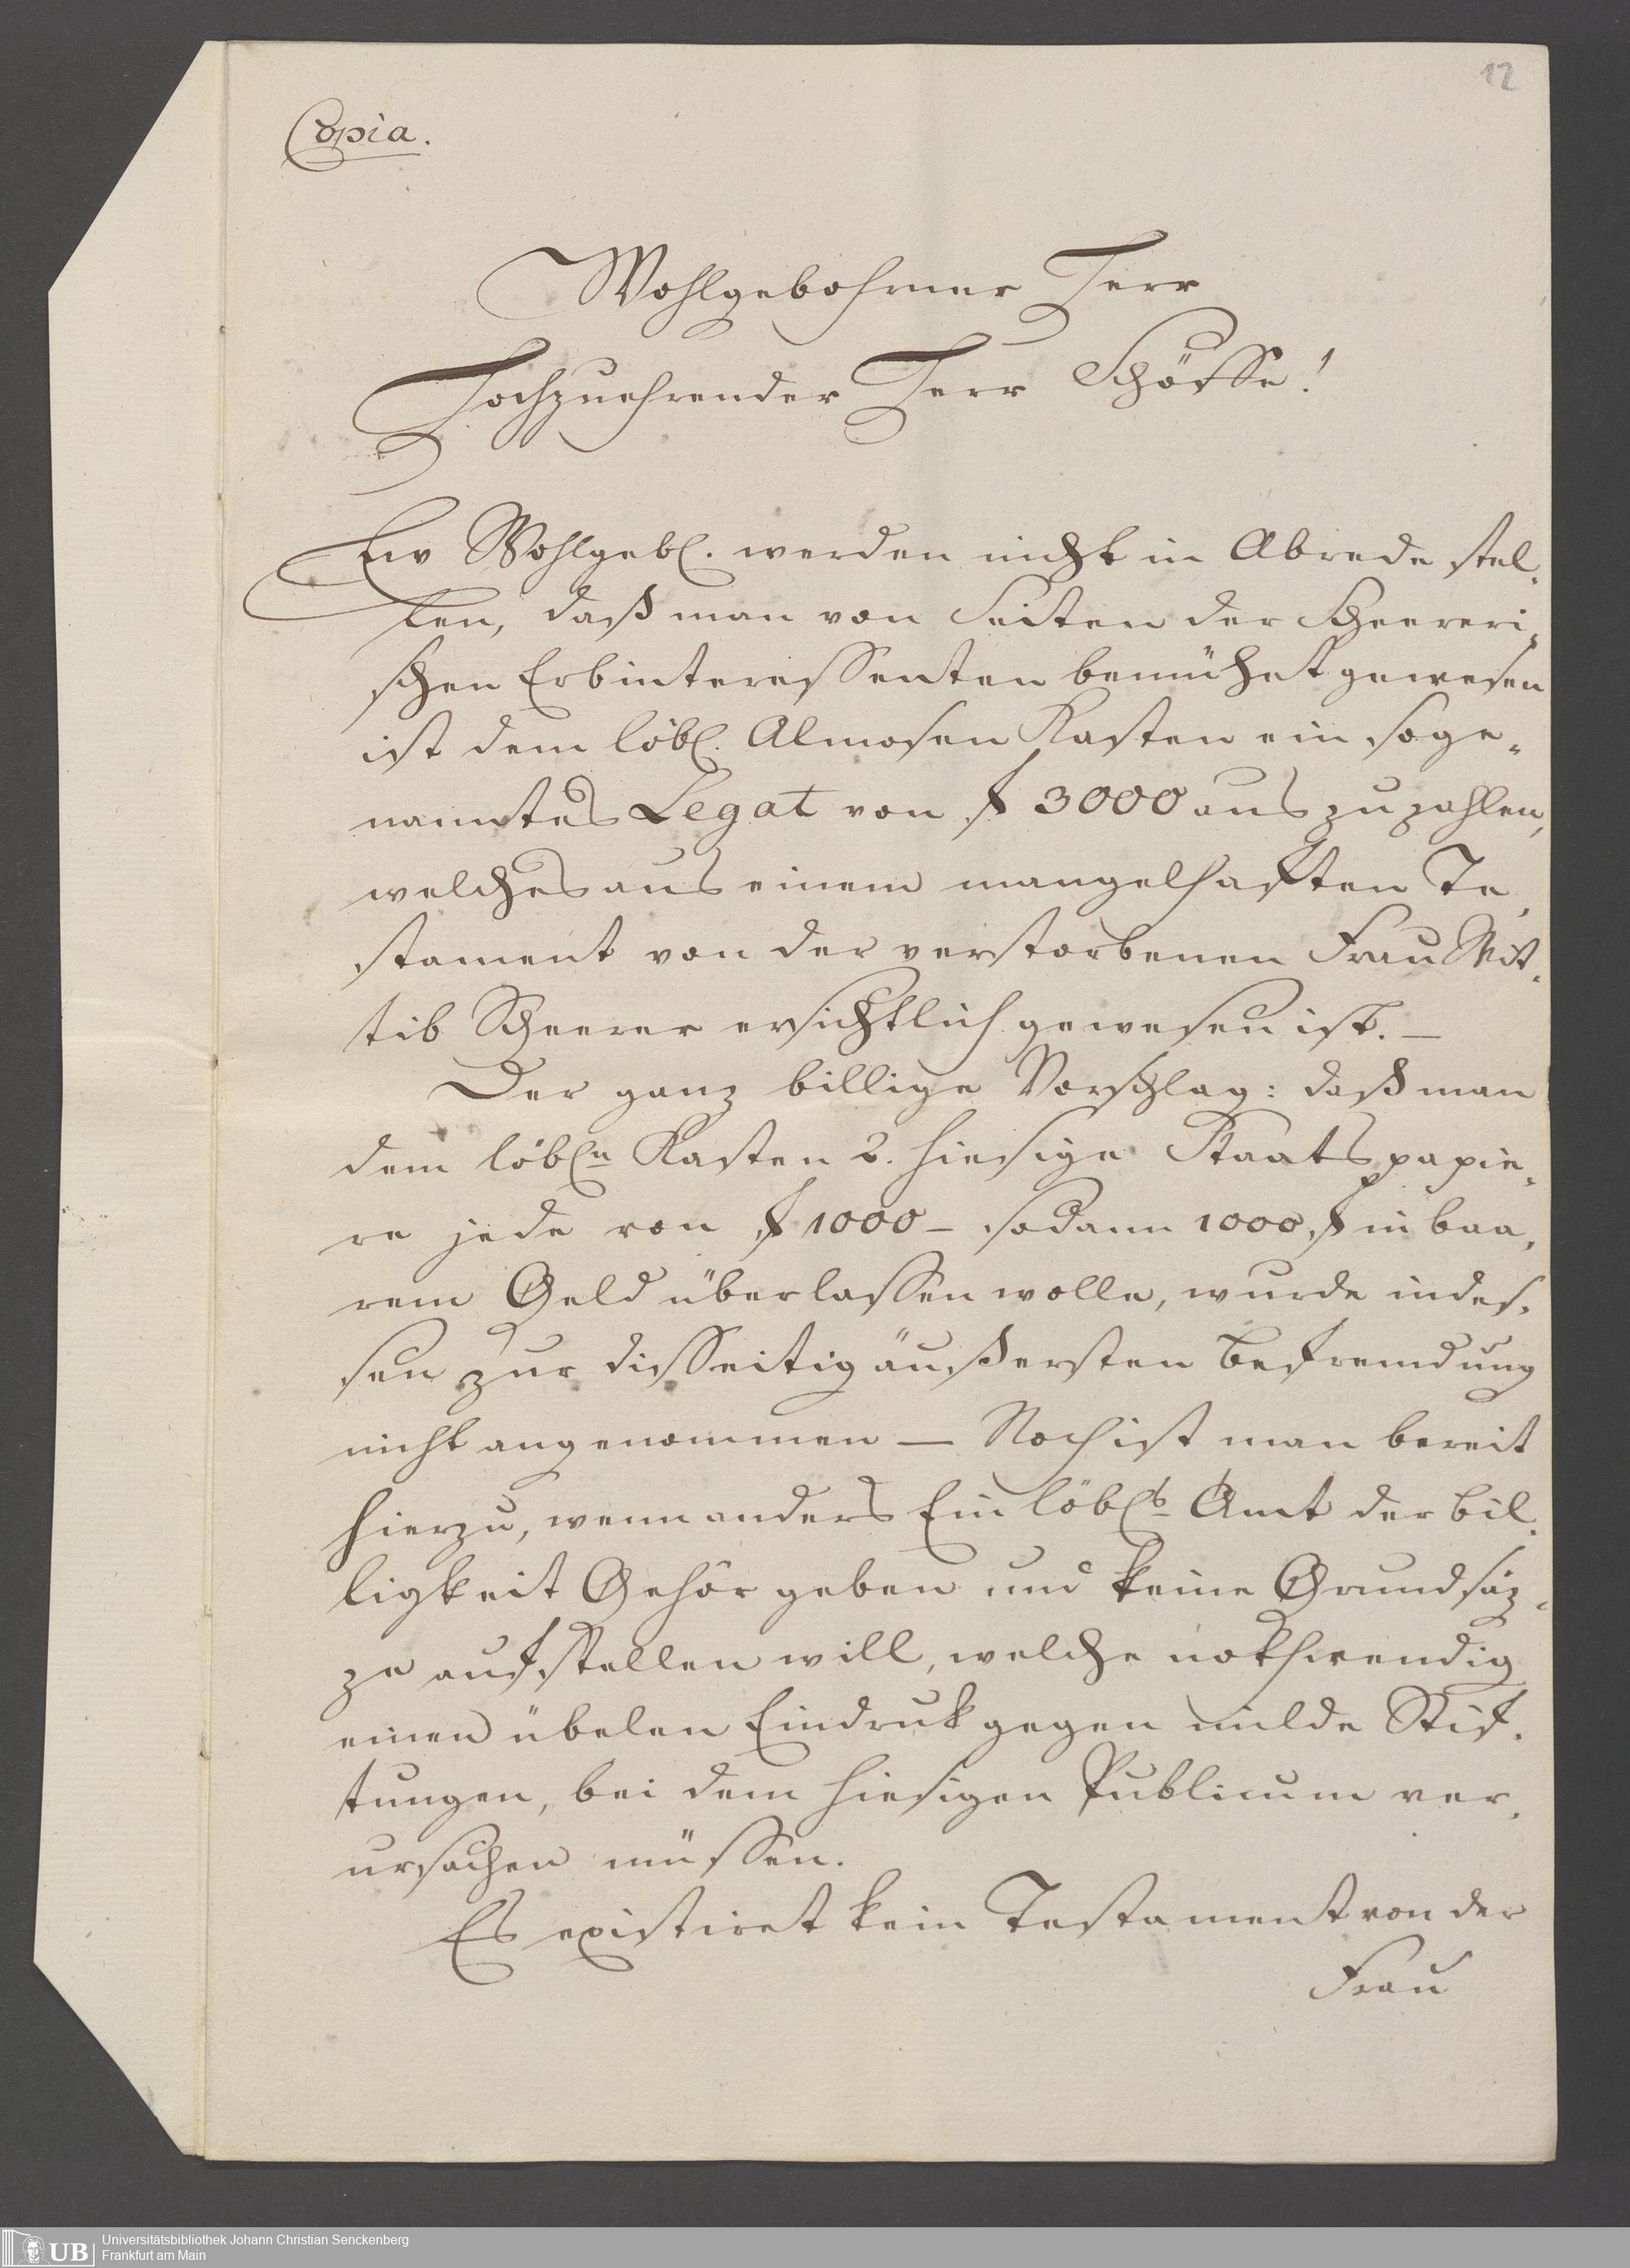 12
Copia.
Wohlgebohrner Herr
Hochzuehrender Herr Schöffe!
Ew Wohlgebl. werden nicht in Abrede stel-
len, daß man von Seiten der Scheereri-
schen Erbinteressenten bemühet gewesen
ist dem löbl. Almosen Kasten ein soge-
nanntes Legat von f 3000 aus zu zahlen,
welches aus einem mangelhaften Te-
stament von der verstorbenen Frau Wit-
tib Scheerer ersichtlich gewesen ist. —
Der ganz billige Vorschlag: daß man
dem löbln Kasten 2. hiesige Staatspapie-
re jede von f 1000 – sodann 1000 f in baa-
rem Geld überlassen wolle, wurde indes-
sen zur disseitig äußersten Befremdung
nicht angenommen — Noch ist man bereit
hierzu, wenn anders Ein löbls Amt der Bil-
ligkeit Gehör geben und keine Grundsäz-
ze aufstellen will, welche nothwendig
einen übelen Eindruk gegen milde Stif-
tungen, bei dem hiesigen Publicum ver-
ursachen müssen.
Es existiret kein Testament von der
Frau
UB
Universitätsbibliothek Johann Christian Senckenberg
Frankfurt am Main